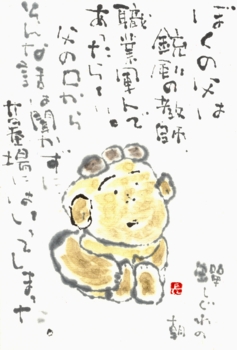 ぼくの父は
銃剣の教師
職業軍人で
あったらしい
父の口から
そんな話は聞かずに
墓場にはいってしまった。
蝉しぐれの
朝